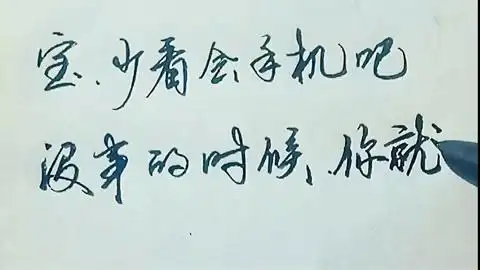 宝、少看会手机吧
没事的时候、你就